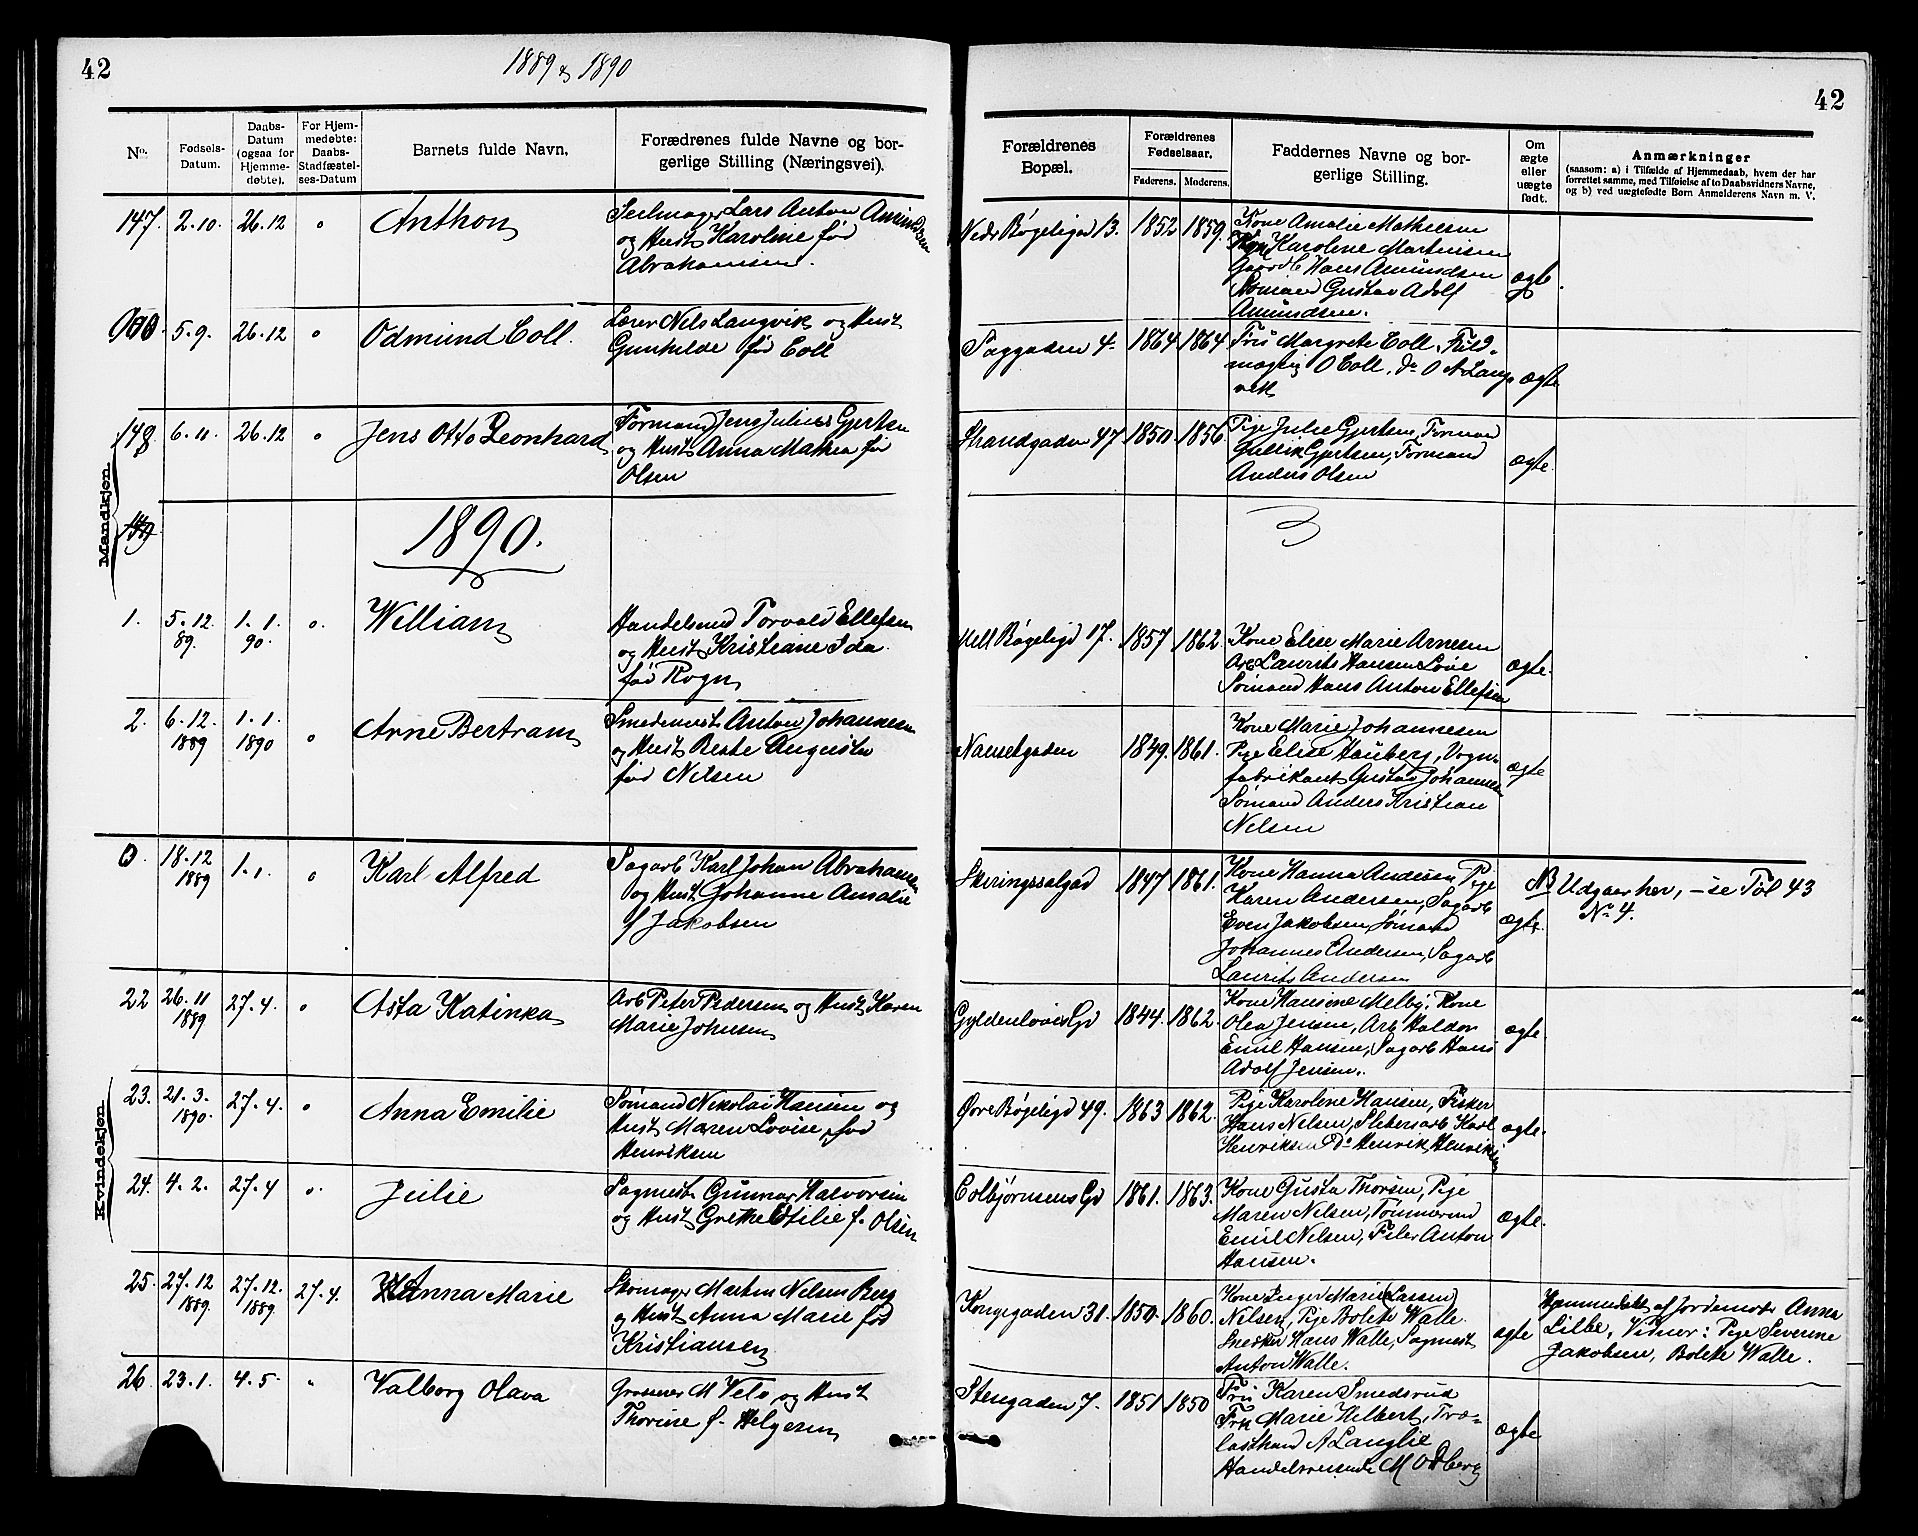 42
1889 & 1890
No.
Fødsels-Datum.
Daabs-Datum (ogsaa for Hjemme-døbte).
For Hjem-medøbte: Daabs-Stadfæstel-ses-Datum
Barnets fulde Navn.
Forædrenes fulde Navne og bor-
gerlige Stilling (Næringsvei).
147. 2.10. 26.12 " Anthon
Seilmager Lars Anton Amundsen
og Hust Karoline før
Abrahamsen.
5.9. 26.12 " Odmund Coll.
Lærer Nels Langvik og Hust
Gunhilde før Coll
Mandkjøn
148. 6.11. 26.12 " Jens Otto Leonhard
Formand Jens Julius Gjertsen
og Hust Anna Mathea før
Olsen
149
1890.
1. 5.12.89. 1.1.90. " William
Handelsmd Torvald Ellefsen
og Hust Kristiane Ida
før Rogn
2. 6.12.1889 1.1.1890 " Arne Bertram
Smedemest Anton Johannesen
og Hust Beate Augusta
før Nilsen
0. 18.12 1889 1.1. " Karl Alfred
Sagarb Karl Johan Abrahamsen
og Hust Johanne Amalie
f Jakobsen
22 26.11 1889 27.4. " Asta Katinka
Arb Peter Pedersen og Hust Karen
Marie Johnsen
Kvindekjøn
23. 21.3.1890. 27.4. " Anna Emilie
Sømand Nikolai Hansen og
Hust Maren Lovise, før
Henriksen
24. 4.2. 27.4 " Julie
Sagmest Gunnar Halvorsen
og Hust Grethe Otilie f. Olsen
25. 27.12 1889. 27.12.1889. 27.4. Anna Marie
Skomager Martin Nilsen Berg
og Hust Anna Marie før
Kristiansen
26. 23.1. 4.5 " Valborg Olava
Grosserer M Velo og Hust
Thorine f. Helgesen
42
Forældrenes
Bopæl.
Forældrenes
Fødselsaar.
Faderens. Moderens.
Faddernes Navne og bor-
gerlige Stilling.
Om
ægte
eller
uægte
født.
Anmærkninger
(saasom: a) i Tilfælde af Hjemmedaab, hvem der har
forrettet samme, med Tilføielse af to Daabsvidners Navne,
og b) ved uægtefødte Børn Anmelderens Navn m. V.
Nedr Bøgeligd 13. 1852 1859. ægte.
Kone Amalie Mathisen
Kone Karolene Martinsen
Gaardb Hans Amundsen
Sømand Gustav Adolf
Amundsen.
Saggaden 4. 1864 1864 ægte
Fru Margrete Coll, Fuld-
mægtig O Coll, do O A Lang-
vik
Strandgaden 47. 1850. 1856. ægte.
Pige Julie Gjertsen, Formand
Gullik Gjertsen, Formand
Anders Olsen
Mell Bøgeligd 17. 1857 1862. ægte.
Kone Elise Marie Arnesen
Arb Laurits Hansen Løve
Sømand Hans Anton Ellefsen
Nansetgaden 1849. 1861. ægte
Kone Marie Johannesen
Pige Elise Hauberg, Vogn-
fabrikant Gustav Johannesen
Sømand Anders Kristian
Nilsen
Skiringssalgad 1847 1861. ægte.
Kone Hanna Andersen, Pige
Karen Andersen, Sagarb
Even Jakobsen, Sømand
Johannes Andersen, Sagarb
Laurits Andersen
NB Udgaar her, - se Fol 43
No 4.
Gyldenløves Gd 1844. 1862. ægte.
Kone Hansine Melby, Kone
Olea Jensen, Arb Haldor
Emil Hansen, Sagarb Hans
Adolf Jensen.
Øvre Bøgeligd 49. 1863 1862. ægte.
Pige Karoline Hansen, Fisker
Hans Nilsen, Sliberiarb Karl
Henriksen Do Henrik Henriksen
Colbjørnsens Gd 1861. 1863. ægte.
Kone Gusta Thorsen, Pige
Maren Nilsen, Tømmermd
Emil Nilsen, Filer Anton
Hansen.
Kongegaden 31. 1850. 1860. ægte
Kone Inger Marie (Larsen)
Nilsen, Pige Bolette Walle
Snedker Hans Walle, Sagmest
Anton Walle.
Hjemmedøbt af Jordemoder Anna
Lilbe, Vidner: Pige Severine
Jakobsen, Bolette Walle.
Stengaden 7. 1851 1850 ægte
Fru Karen Smedsrud
Frk Marie Hilbert, Træ-
lasthand A Langlie
Handelsreisende M Ødberg